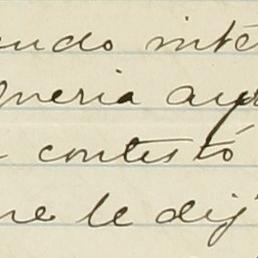 endo inte
queria ayu
contestó
ue le dij